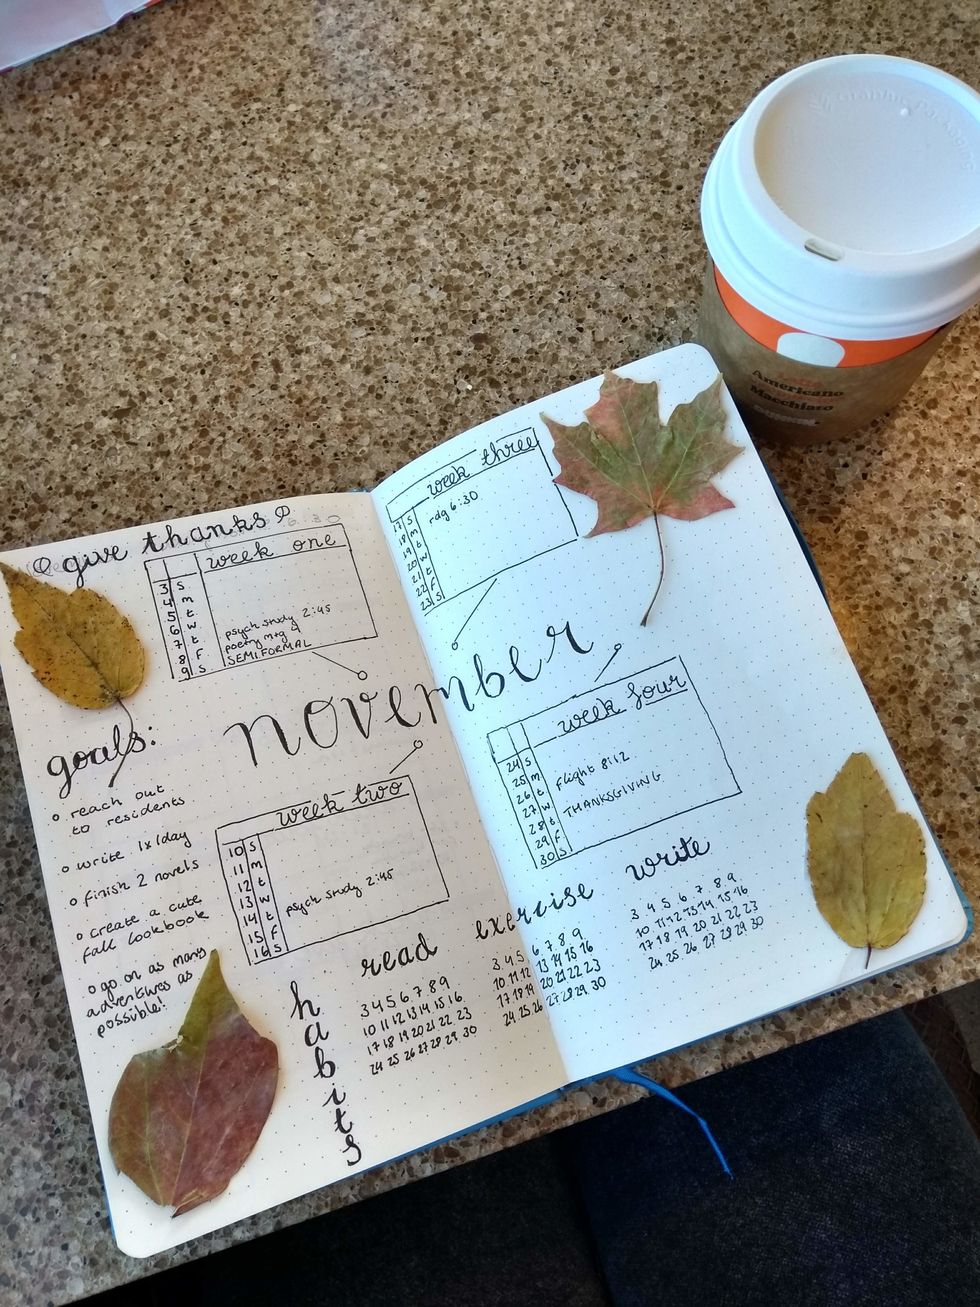 give thanks
week one
3 S
4 m
5 t
6 w
7 t
8 F
9 S
psych study 2:45
poetry mtg 9
SEMIFORMAL
november
goals:
reach out
to residents
write 1x1day
finish 2 novels
create a cute
fall lookbook
go on as many
adventures as
possible!
week two
10 S
11 m
12 t
13 w
14 t
15 F
16 S
psych study 2:45
week three
17 S
18 m
19 t
20 w
21 t
22 F
23 S
rdg 6:30
week four
24 S
25 m
26 t
27 w
28 t
29 F
30 S
flight 8:12
THANKSGIVING
habits
read
3 4 5 6 7 8 9
10 11 12 13 14 15 16
17 18 19 20 21 22 23
24 25 26 27 28 29 30
exercise
3 4 5 6 7 8 9
10 11 12 13 14 15 16
17 18 19 20 21 22 23
24 25 26 27 28 29 30
write
3 4 5 6 7 8 9
10 11 12 13 14 15 16
17 18 19 20 21 22 23
24 25 26 27 28 29 30
Graphic Packaging
Americano
Macchiato